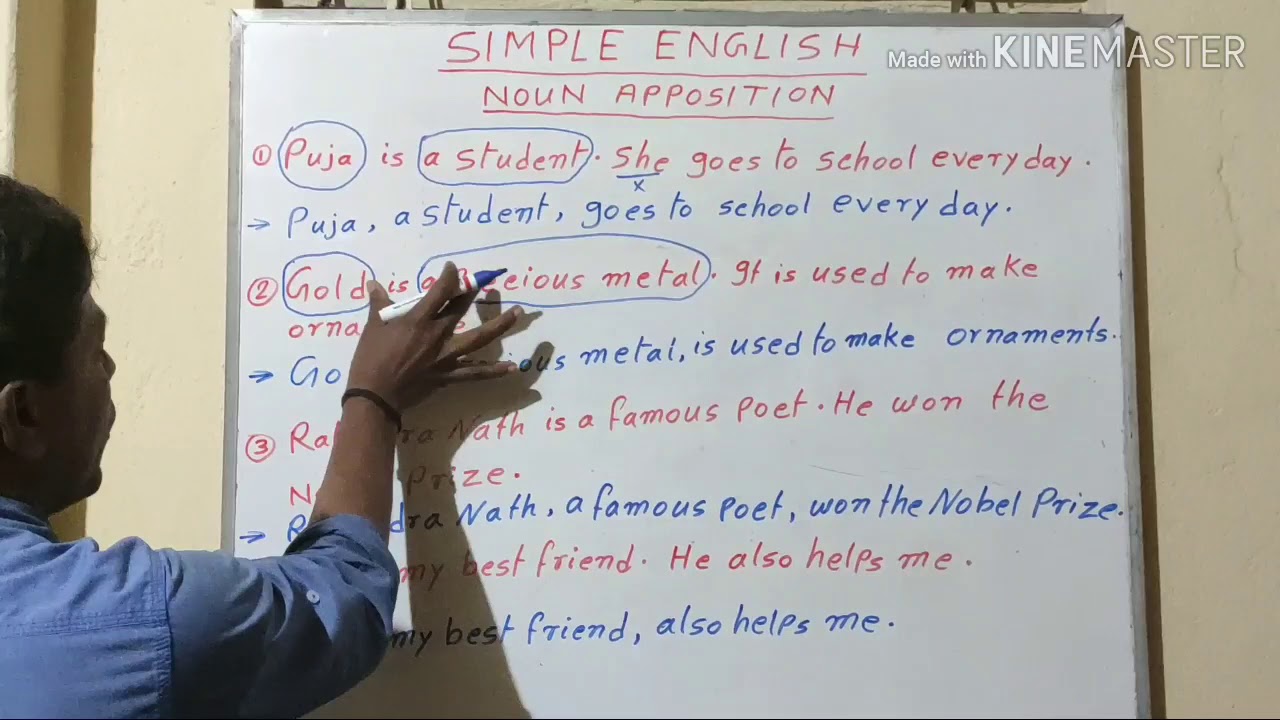 SIMPLE ENGLISH
Made with KINEMASTER
NOUN APPOSITION
① Puja is a student. She goes to school every day.
x
→ Puja, a student, goes to school every day.
② Gold is metal. It is used to make
→ metal, is used to make ornaments.
③ Nath is a famous poet. He won the
Prize.
→ Nath, a famous poet, won the Nobel Prize.
my best friend. He also helps me.
my best friend, also helps me.